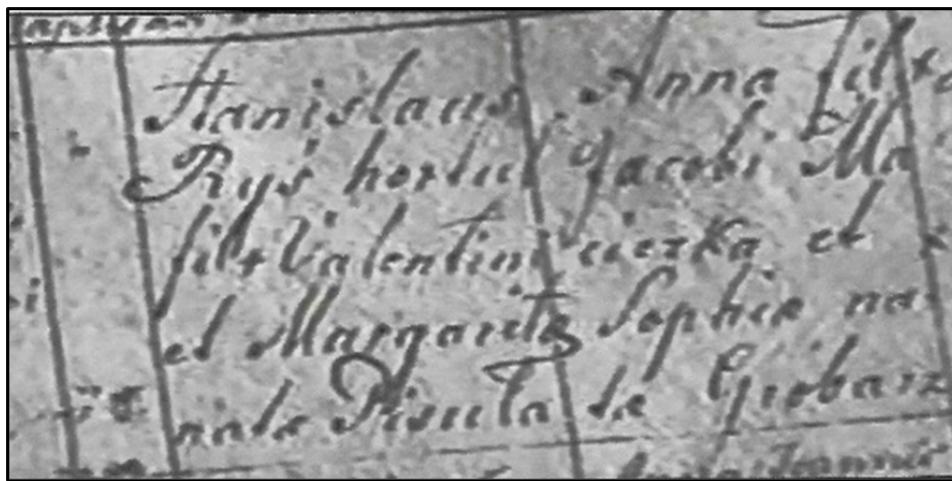 Stanislaus
Ryś hortul
fil+ Valentini
et Margarita
nata Pisula
Anna fil+
Jacobi Ma
cierzka et
Sophie na
de Gierbarz